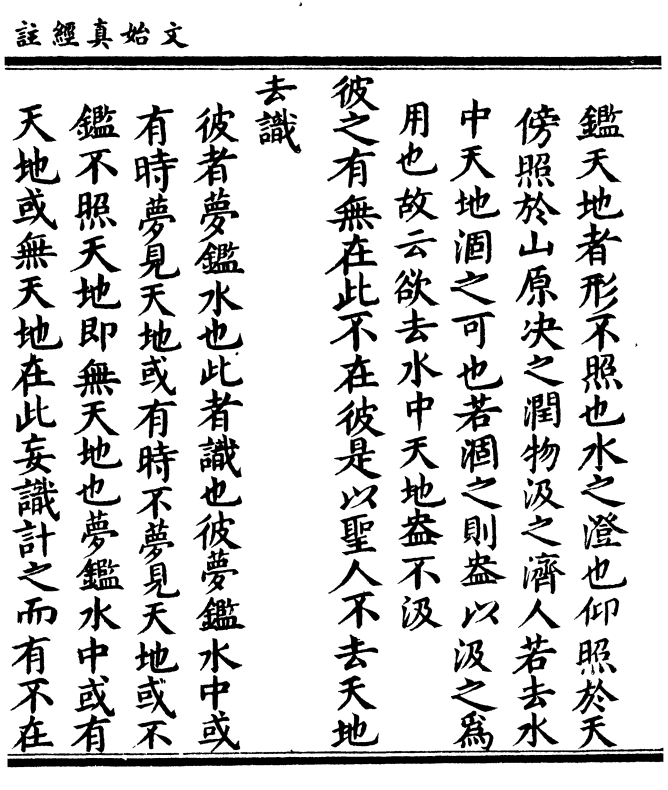 文始真經註
鑑天地者形不照也水之澄也仰照於天
傍照於山原决之潤物汲之濟人若去水
中天地涸之可也若涸之則盎以汲之爲
用也故云欲去水中天地盎不汲
彼之有無在此不在彼是以聖人不去天地
去識
彼者夢鑑水也此者識也彼夢鑑水中或
有時夢見天地或有時不夢見天地或不
鑑不照天地即無天地也夢鑑水中或有
天地或無天地在此妄識計之而有不在